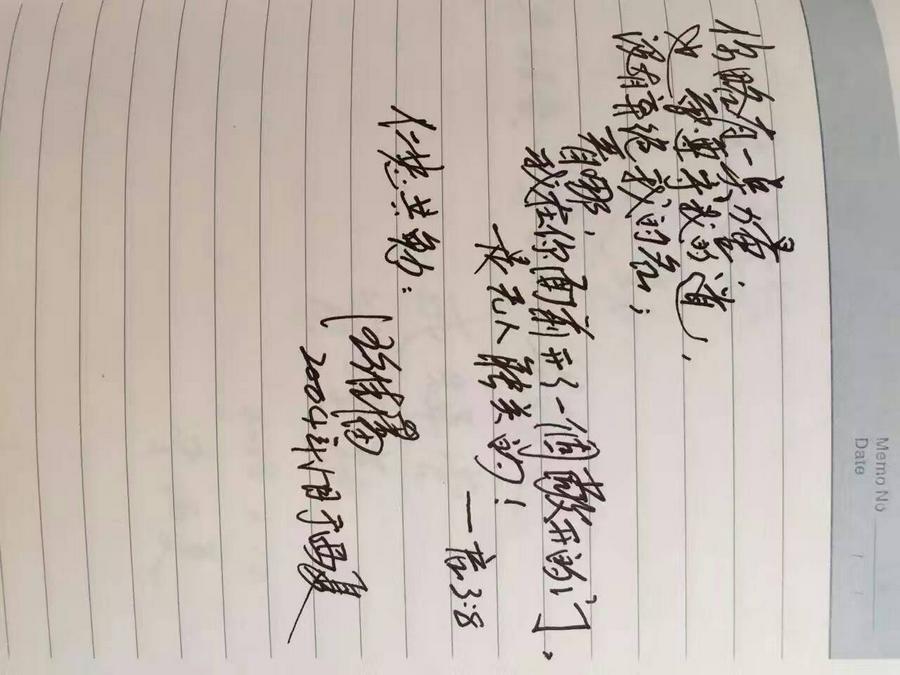 Memo No
Date
你略有一点力量
也曾遵守我的道，
没有弃绝我的名；
看哪，
我在你面前开了一個敞开的门，
是无人能关的！
—启3:8
共勉：
汪维藩
2004年 月于西夏